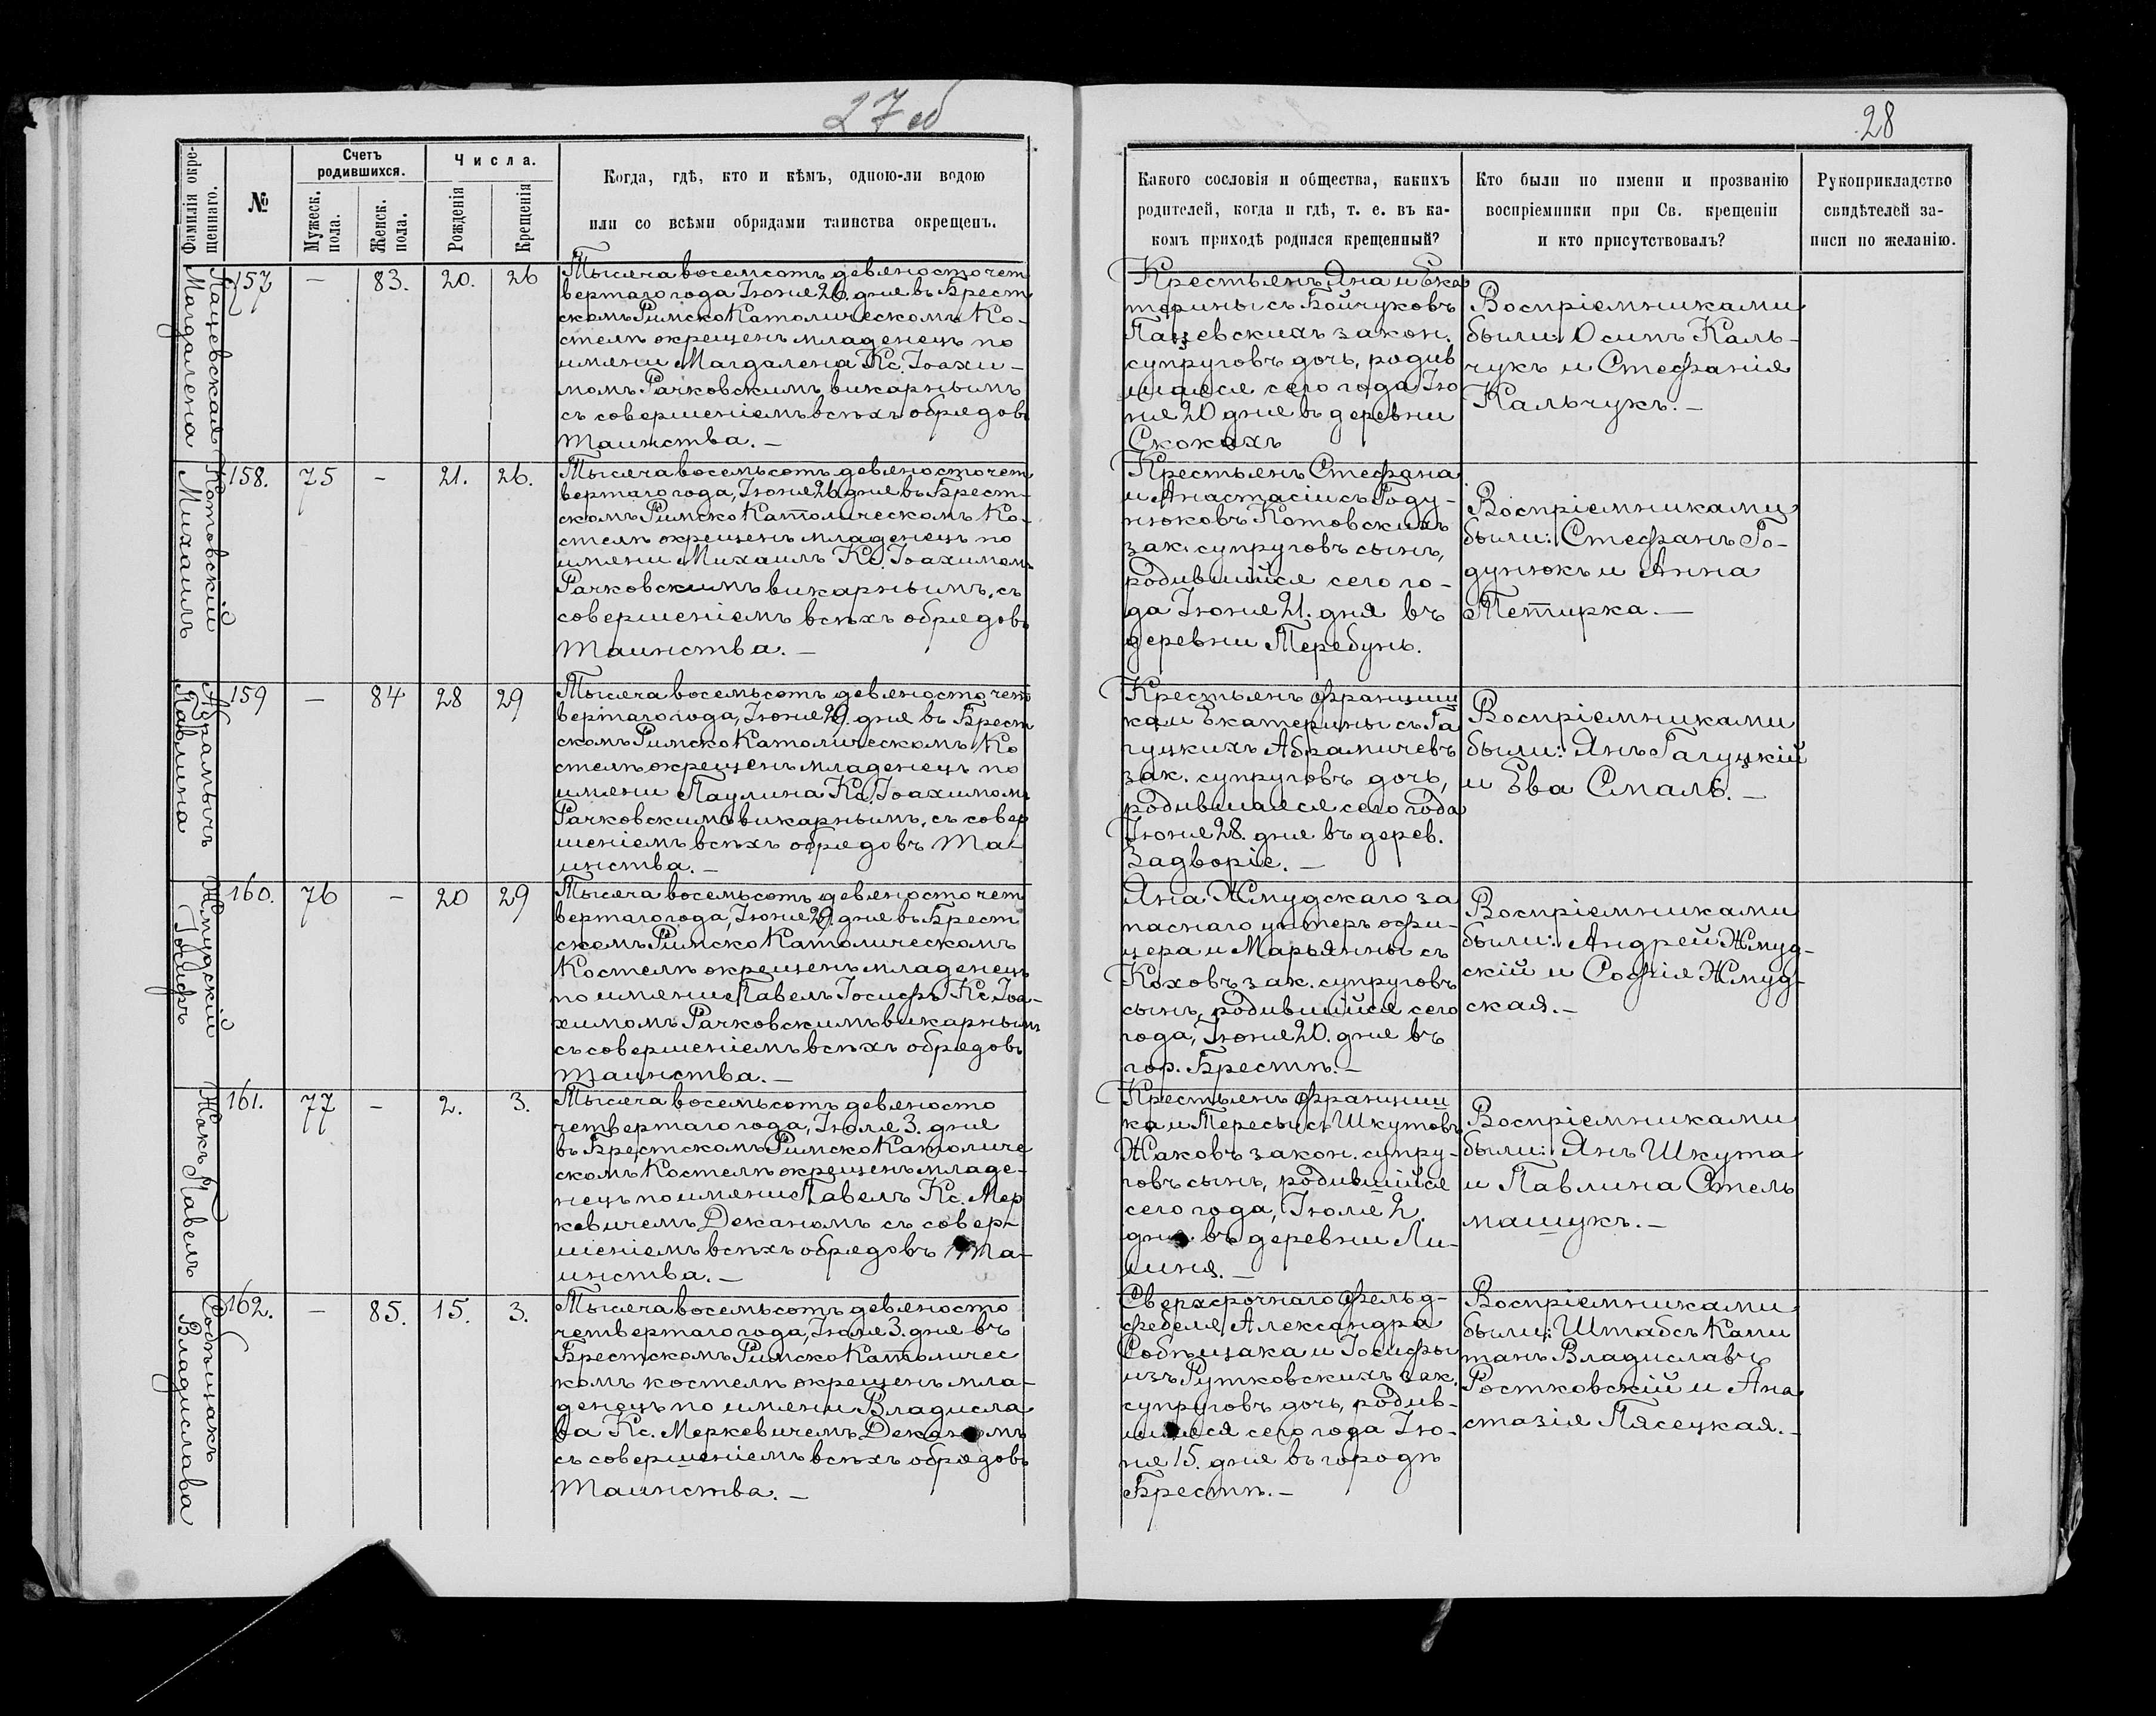 27 об
28
Фамилія окре-
щеннаго.
№
Счетъ
родившихся.
Мужеск.
пола.
Женск.
пола.
Числа.
Рожденія
Крещенія
Когда, гдѣ, кто и кѣмъ, одною-ли водою
или со всѣми обрядами таинства окрещенъ.
Какого сословія и общества, какихъ
родителей, когда и гдѣ, т. е. въ ка-
комъ приходѣ родился крещенный?
Кто были по имени и прозванію
воспріемники при Св. крещеніи
и кто присутствовалъ?
Рукоприкладство
свидѣтелей за-
писи по желанію.
Пацевская
Магдалена
157 — 83. 20. 26
Тысяча восемсотъ девяносто чет
вертаго года Іюня 26. дня въ Брест
скомъ Римско Католическомъ Ко-
стелѣ окрещенъ младенецъ по
имени Магдалена Кс. Іоахи-
момъ Рачковскимъ викарнымъ
съ совершеніемъ всѣхъ обрядовъ
Таинства. —
Крестьянъ Яна и Ека
терины съ Бойчуковъ
Пацевскихъ закон.
супруговъ дочь, родив
шаяся сего года Ію
ня 20 дня въ деревни
Скокахъ
Воспріемниками
были: Осипъ Каль-
чукъ и Стефанія
Кальчукъ. —
Котовскій
Михаилъ
158. 75 — 21. 26.
Тысяча восемьсотъ девяносто чет
вертаго года, Іюня 26 дня въ Брест-
скомъ Римско Католическомъ Ко-
стелѣ окрещенъ младенецъ по
имени Михаилъ Кс. Іоахимомъ
Рачковскимъ викарнымъ, съ
совершеніемъ всѣхъ обрядовъ
Таинства. —
Крестьянъ Стефана
и Анастасіи съ Году-
нюковъ Котовскихъ
зак. супруговъ сынъ,
родившійся сего го-
да Іюня 21. дня въ
деревни Теребунь.
Воспріемниками
были: Стефанъ Го-
дунюкъ и Анна
Петирка. —
Абрамичъ
Павлина
159 — 84 28 29
Тысяча восемьсотъ девяносто чет
вертаго года, Іюня 29. дня въ Брест
скомъ Римско Католическомъ Ко
стелѣ окрещенъ младенецъ по
имени Паулина Кс. Іоахимомъ
Рачковскимъ викарнымъ, съ совер
шеніемъ всѣхъ обрядовъ Та-
инства. —
Крестьянъ Францищ
ка и Екатерины съ Га
луцкихъ Абрамичевъ
зак. супруговъ дочь,
родившаяся сего года
Іюня 28. дня въ дерев.
Задворіе. —
Воспріемниками
были: Янъ Галуцкій
и Ева Смаль. —
Жмудскій
Іосифъ
160. 76 — 20 29
Тысяча восемьсотъ девяносто чет
вертаго года, Іюня 29. дня въ Брест
скомъ Римско Католическомъ
Костелѣ окрещенъ младенецъ
по имени Павелъ Іосифъ Кс. Іоа-
химомъ Рачковскимъ викарнымъ
съ совершеніемъ всѣхъ обрядовъ
Таинства. —
Яна Жмудскаго за
паснаго унтеръ офи-
цера и Марьянны съ
Коховъ зак. супруговъ
сынъ, родившійся сего
года, Іюня 20. дня въ
гор. Брестѣ. —
Воспріемниками
были: Андрей Жмуд-
скій и Софія Жмуд-
ская. —
Жакъ Павелъ
161. 77 — 2. 3.
Тысяча восемьсотъ девяносто
четвертаго года, Іюля 3. дня
въ Брестскомъ Римско Католиче
скомъ Костелѣ окрещенъ младе-
нецъ по имени Павелъ Кс. Мер
кевичемъ Деканомъ съ совер-
шеніемъ всѣхъ обрядовъ Та-
инства. —
Крестьянъ Францищ
ка и Тересы съ Шкутовъ
Жаковъ закон. супру-
говъ сынъ, родившійся
сего года, Іюля 2.
дня въ деревни Ли-
шня. —
Воспріемниками
были: Янъ Шкута
и Павлина Стель
машукъ. —
Собѣщакъ
Владислава
162. — 85. 15. 3.
Тысяча восемьсотъ девяносто
четвертаго года, Іюля 3. дня въ
Брестскомъ Римско Католичес
комъ костелѣ окрещенъ мла-
денецъ по имени Владисла
ва Кс. Меркевичемъ Деканомъ
съ совершеніемъ всѣхъ обрядовъ
Таинства. —
Сверхсрочнаго Фельд-
фебеля Александра
Собѣщака и Іосифы
изъ Рутковскихъ зак.
супруговъ дочь, родив-
шаяся сего года Ію-
ня 15. дня въ городѣ
Брестѣ. —
Воспріемниками
были: Штабсъ Капи
танъ Владиславъ
Ростковскій и Ана
стазія Пясецкая. —